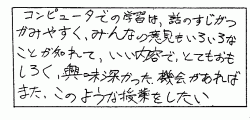 コンピュータでの学習は、話のすじがつ
かみやすく、みんなの意見もいろいろな
ことが知れて、いい内容で、とてもおも
しろく、興味深かった。機会があれば
また、このような授業をしたい